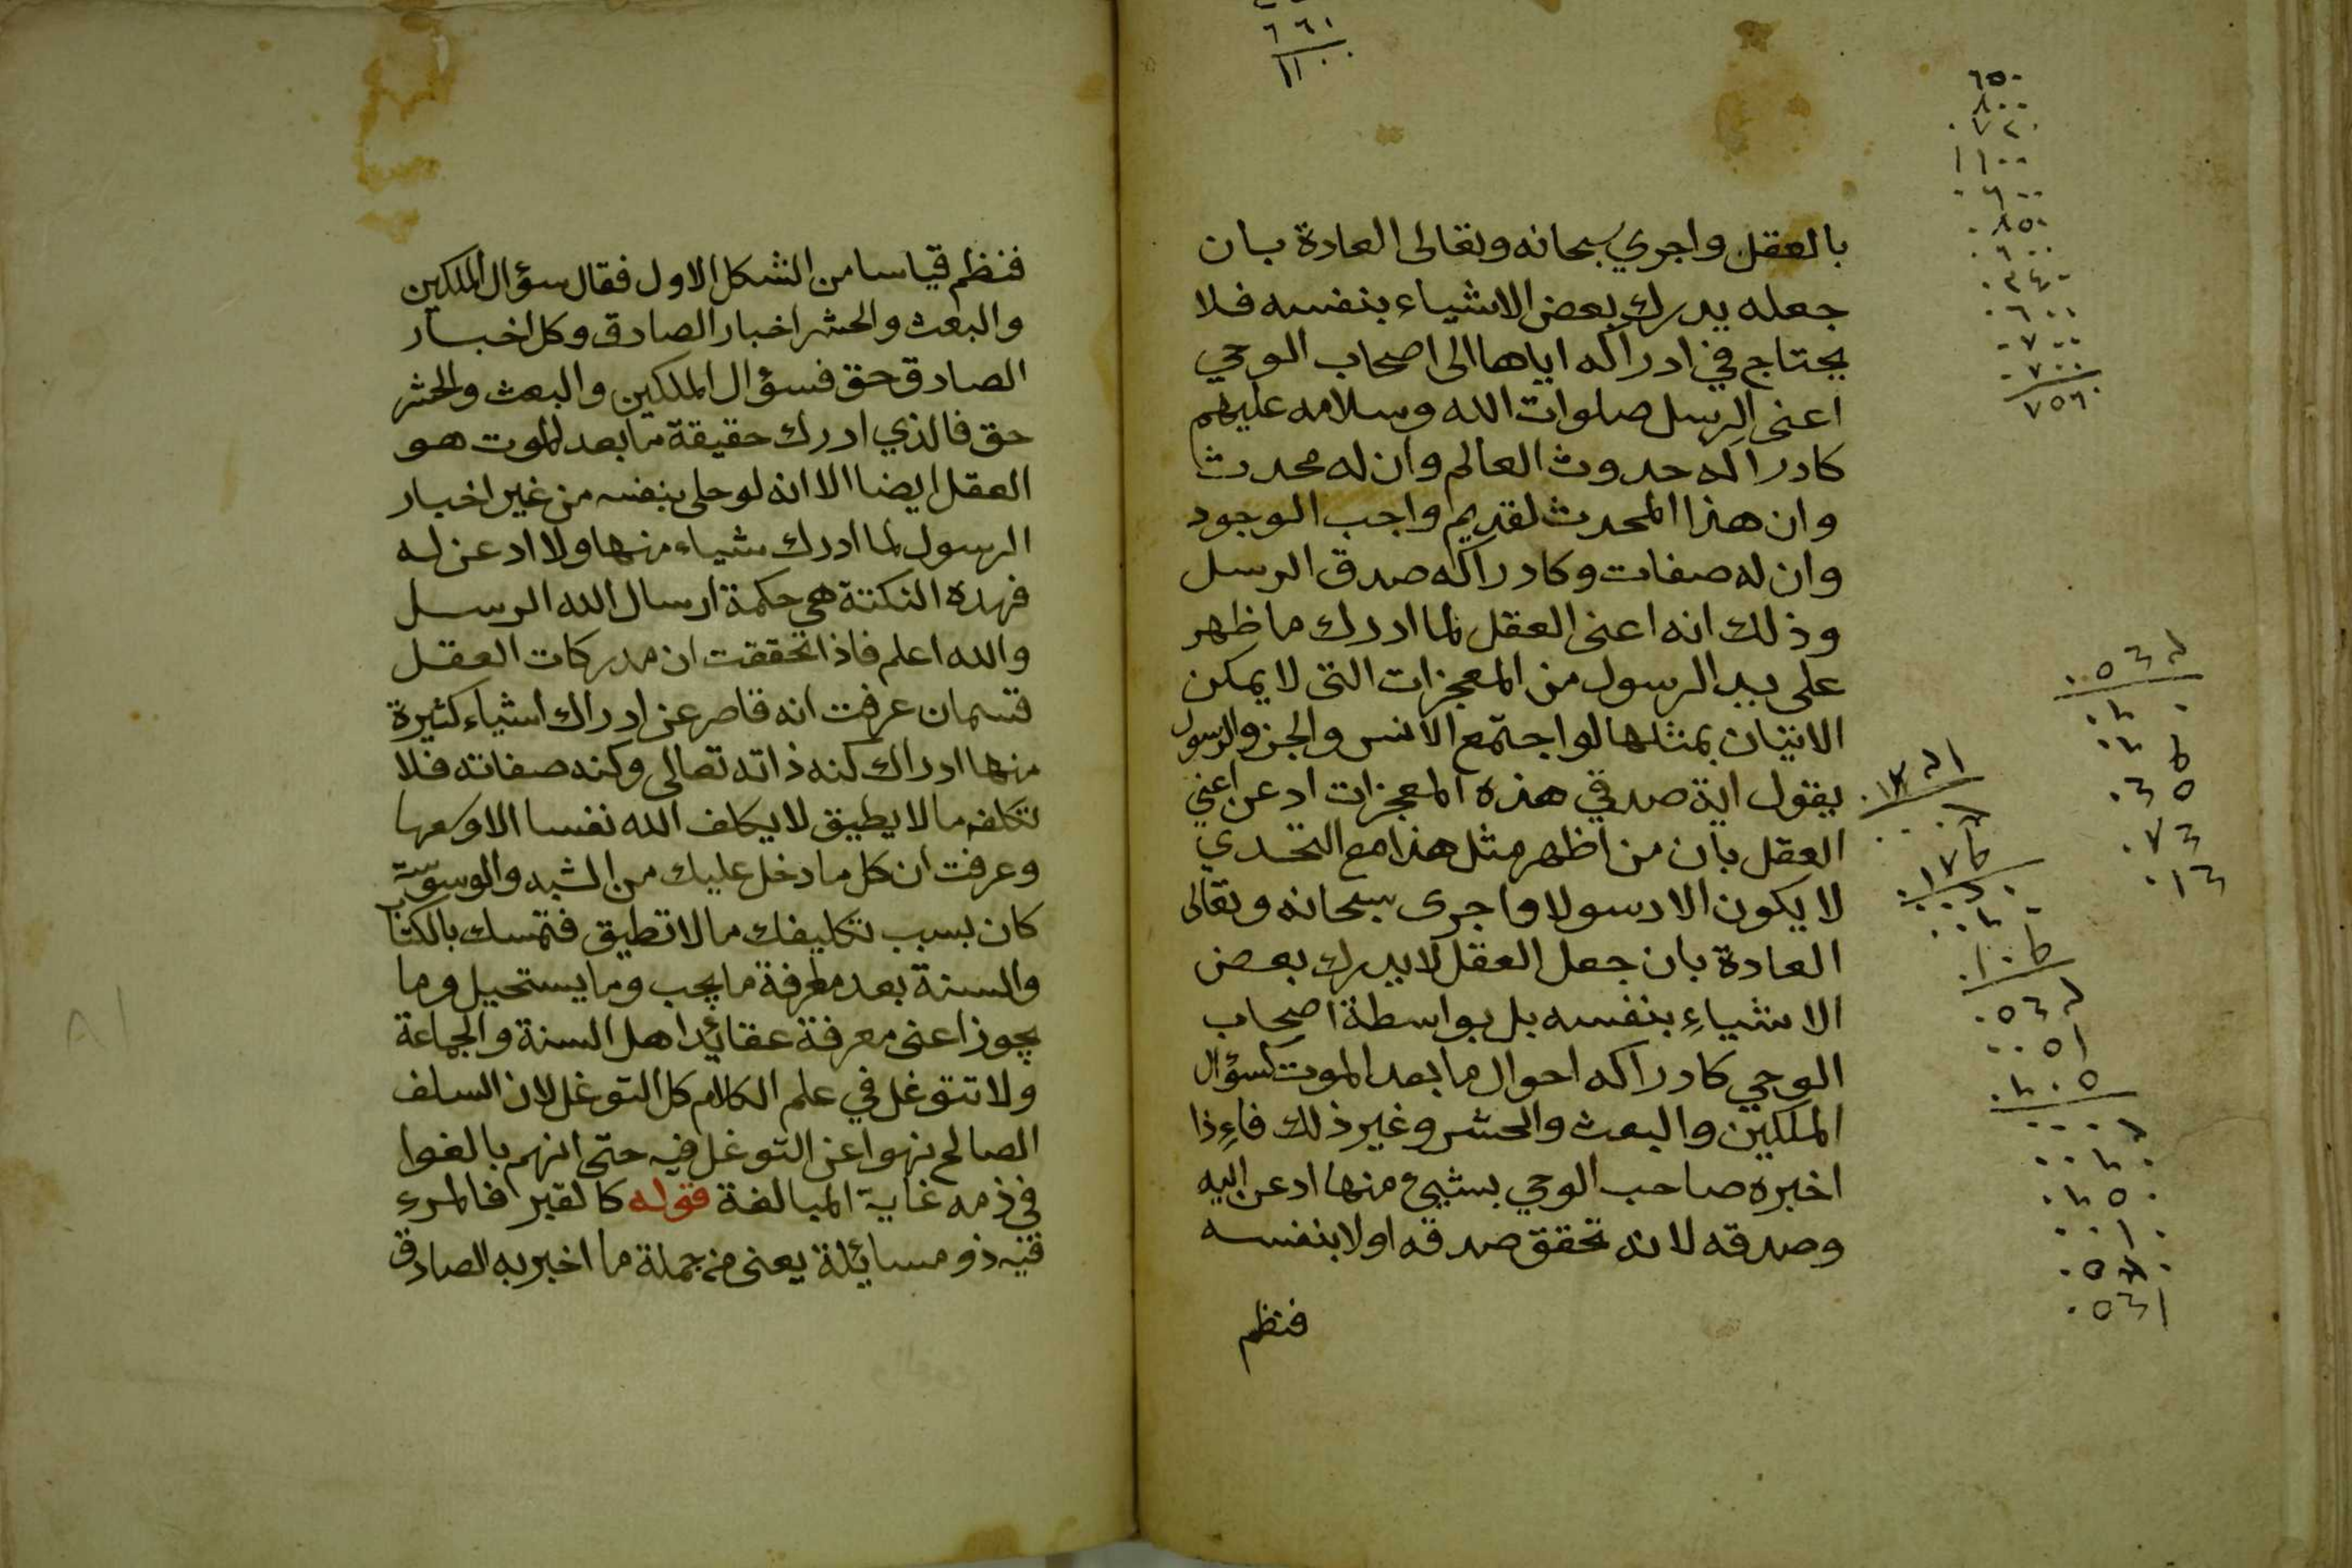 بالعقل واجري سبحانه وتعالى العادة بان
جعله يدرك بعض الاشياء بنفسه فلا
يحتاج في ادراكه اياها الى اصحاب الوحي
اعنى الرسل صلوات الله وسلامه عليهم
كادراكه حدوث العالم وان له محدثا
وان هذا المحدث لقديم واجب الوجود
وان له صفات وكادراكه صدق الرسل
وذلك انه اعنى العقل لما ادرك ما ظهر
على يد الرسول من المعجزات التى لا يمكن
الاتيان بمثلها لو اجتمع الانس والجن والرسول
يقول اية صدقي هذه المعجزات ادعن اعني
العقل بان من اظهر مثل هذا مع التحدي
لا يكون الا رسولا واجرى سبحانه وتعالى
العادة بان جعل العقل لا يدرك بعض
الاشياءِ بنفسه بل بواسطة اصحاب
الوحي كادراكه احوال ما بعد الموت كسؤال
الملكين والبعث والحشر وغير ذلك فاءِذا
اخبره صاحب الوحي بشيئ منها ادعن اليه
وصدقه لانه تحقق صدقه اولا بنفسه
فنظم
فنظم قياسا من الشكل الاول فقال سؤال الملكين
والبعث والحشر اخبار الصادق وكل اخبار
الصادق حق فسؤال الملكين والبعث والحشر
حق فالذي ادرك حقيقة ما بعد الموت هو
العقل ايضا الا انه لوحلى بنفسه من غير اخبار
الرسول لما ادرك شياء منها ولا ادعن له
فهده النكتة هي حكمة ارسال الله الرسل
والله اعلم فاذا تحققت ان مدركات العقل
قسمان عرفت انه قاصر عن ادراك اشياء كثيرة
منها ادراك كنه ذاته تعالى وكنه صفاته فلا
تكلفه ما لا يطيق لا يكلف الله نفسا الا وسعها
وعرفت ان كل ما دخل عليك من الشبه والوسوسة
كان بسبب تكليفك ما لا تطيق فتمسك بالكتا
والسنة بعد معرفة ما يجب وما يستحيل وما
يجوز اعنى معرفة عقائد اهل السنة والجماعة
ولا تتوغل في علم الكلام كل التوغل لان السلف
الصالح نهوا عن التوغل فيه حتى انهم بالغوا
في ذمه غاية المبالغة قوله كالقبر فالمرءِ
فيه ذو مسايئلة يعنى من جملة ما اخبر به الصادق